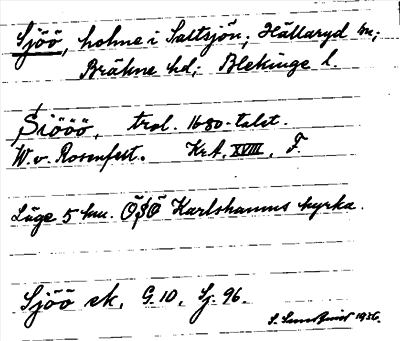 Sjöö, holme i Saltsjön; Hällaryd sn;
Bräkne hd; Blekinge l.
Siööö, trol. 1680-talet.
W. v. Rosenfelt. KrA, XVIII, F.
Läge 5 km. ÖSÖ Karlshamns kyrka.
Sjöö ek. G. 10. Sj. 96.
1936.